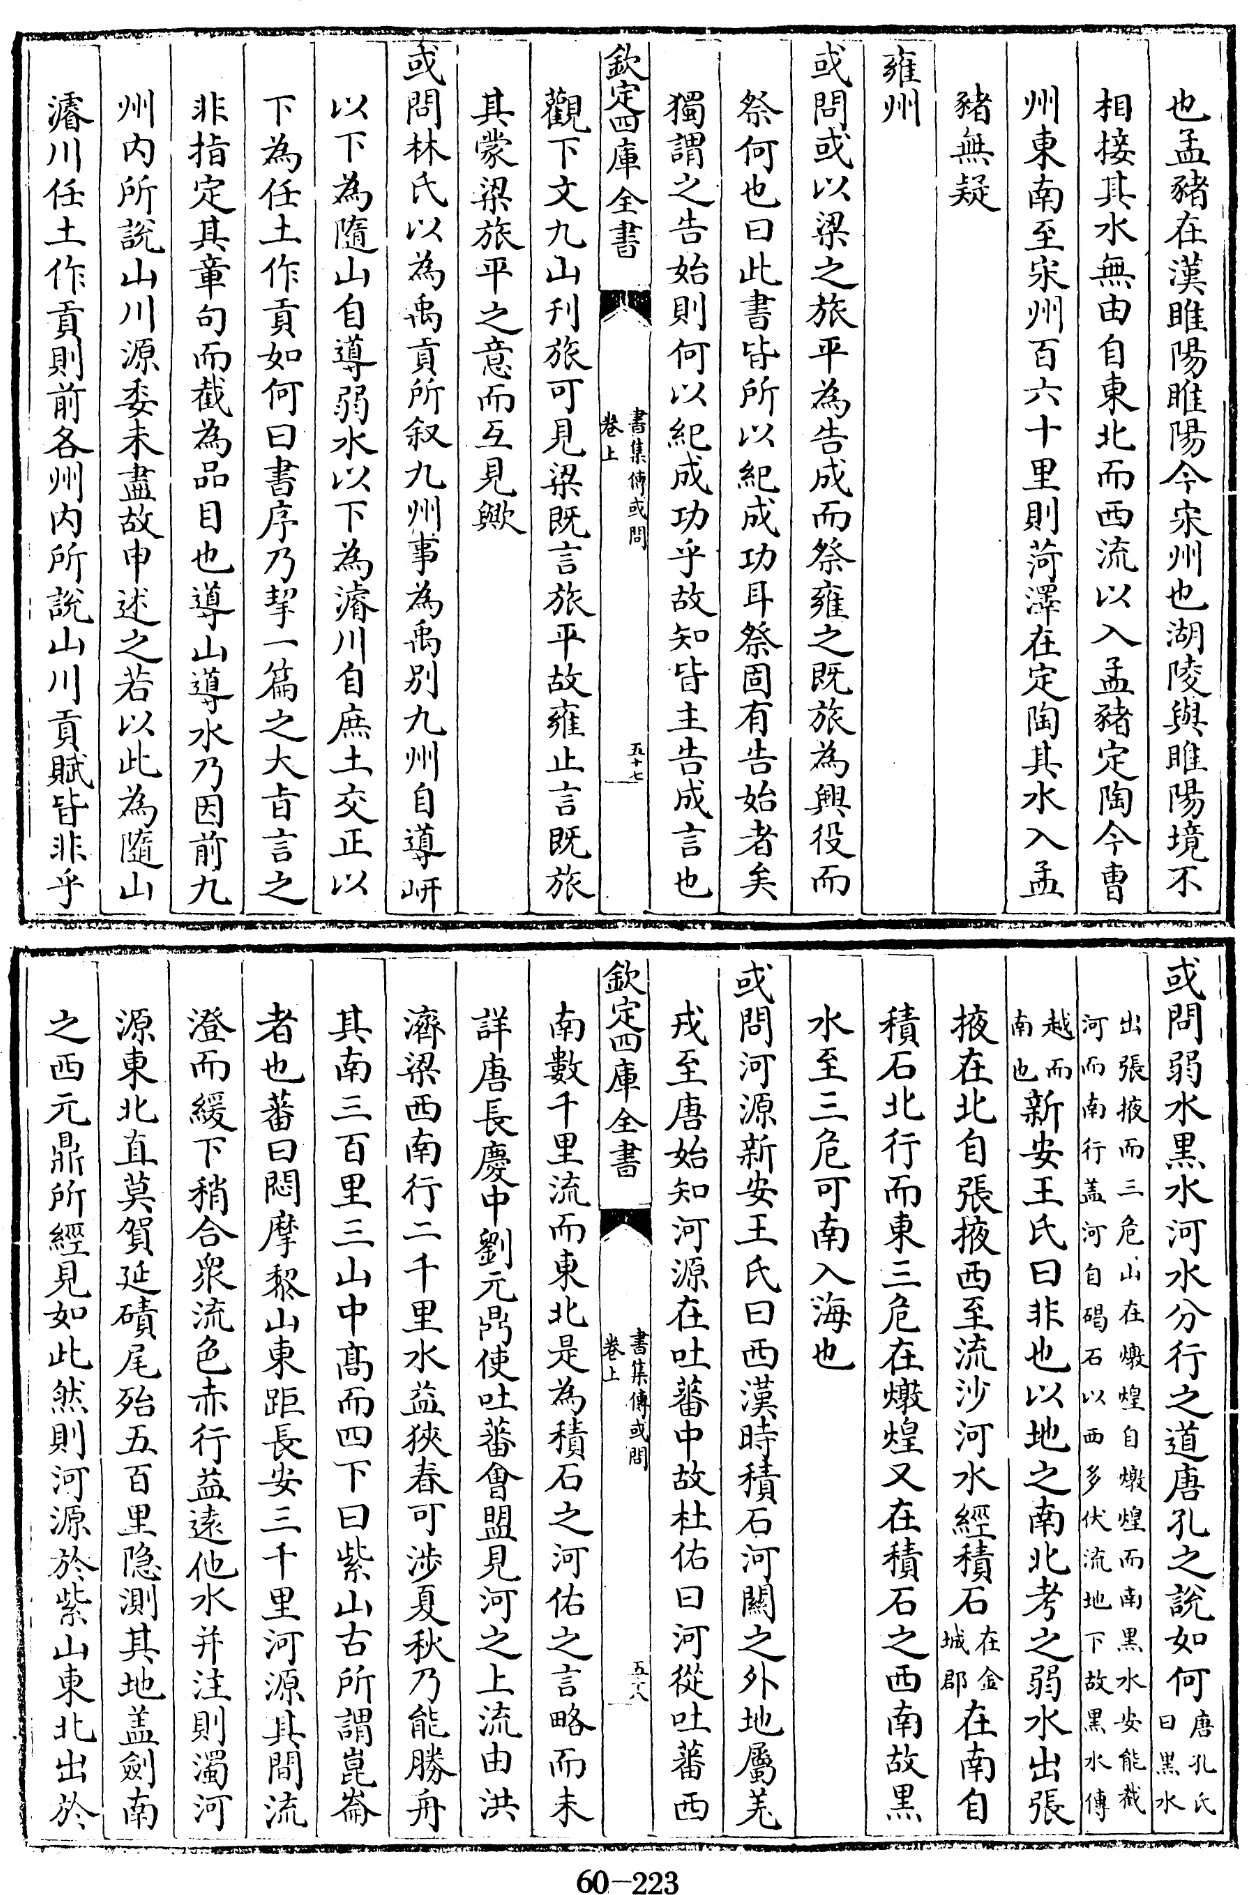 也孟豬在漢睢陽睢陽今宋州也湖陵與睢陽境不
相接其水無由自東北而西流以入孟豬定陶今曹
州東南至宋州百六十里則菏澤在定陶其水入孟
豬無疑
雍州
或問或以梁之旅平為告成而祭雍之既旅為興役而
祭何也曰此書皆所以紀成功耳祭固有告始者矣
獨謂之告始則何以紀成功乎故知皆主告成言也
欽定四庫全書
書集傳或問
卷上
五十七
觀下文九山刊旅可見梁既言旅平故雍止言既旅
其蒙梁旅平之意而互見歟
或問林氏以為禹貢所叙九州事為禹別九州自導岍
以下為隨山自導弱水以下為濬川自庶土交正以
下為任土作貢如何曰書序乃挈一篇之大旨言之
非指定其章句而截為品目也導山導水乃因前九
州內所說山川源委未盡故申述之若以此為隨山
濬川任土作貢則前各州內所說山川貢賦皆非乎
或問弱水黑水河水分行之道唐孔之說如何唐孔氏曰黑水
出張掖而三危山在燉煌自燉煌而南黑水安能截
河而南行蓋河自碣石以西多伏流地下故黑水傳
越而南也新安王氏曰非也以地之南北考之弱水出張
掖在北自張掖西至流沙河水經積石在金城郡在南自
積石北行而東三危在燉煌又在積石之西南故黑
水至三危可南入海也
或問河源新安王氏曰西漢時積石河關之外地屬羌
戎至唐始知河源在吐蕃中故杜佑曰河從吐蕃西
欽定四庫全書
書集傳或問
卷上
五十八
南數千里流而東北是為積石之河佑之言略而未
詳唐長慶中劉元鼎使吐蕃會盟見河之上流由洪
濟梁西南行二千里水益狹春可涉夏秋乃能勝舟
其南三百里三山中高而四下曰紫山古所謂崑崙
者也蕃曰悶摩黎山東距長安三千里河源其間流
澄而緩下稍合衆流色赤行益遠他水并注則濁河
源東北直莫賀延磧尾殆五百里隱測其地蓋劍南
之西元鼎所經見如此然則河源於紫山東北出於
60-223